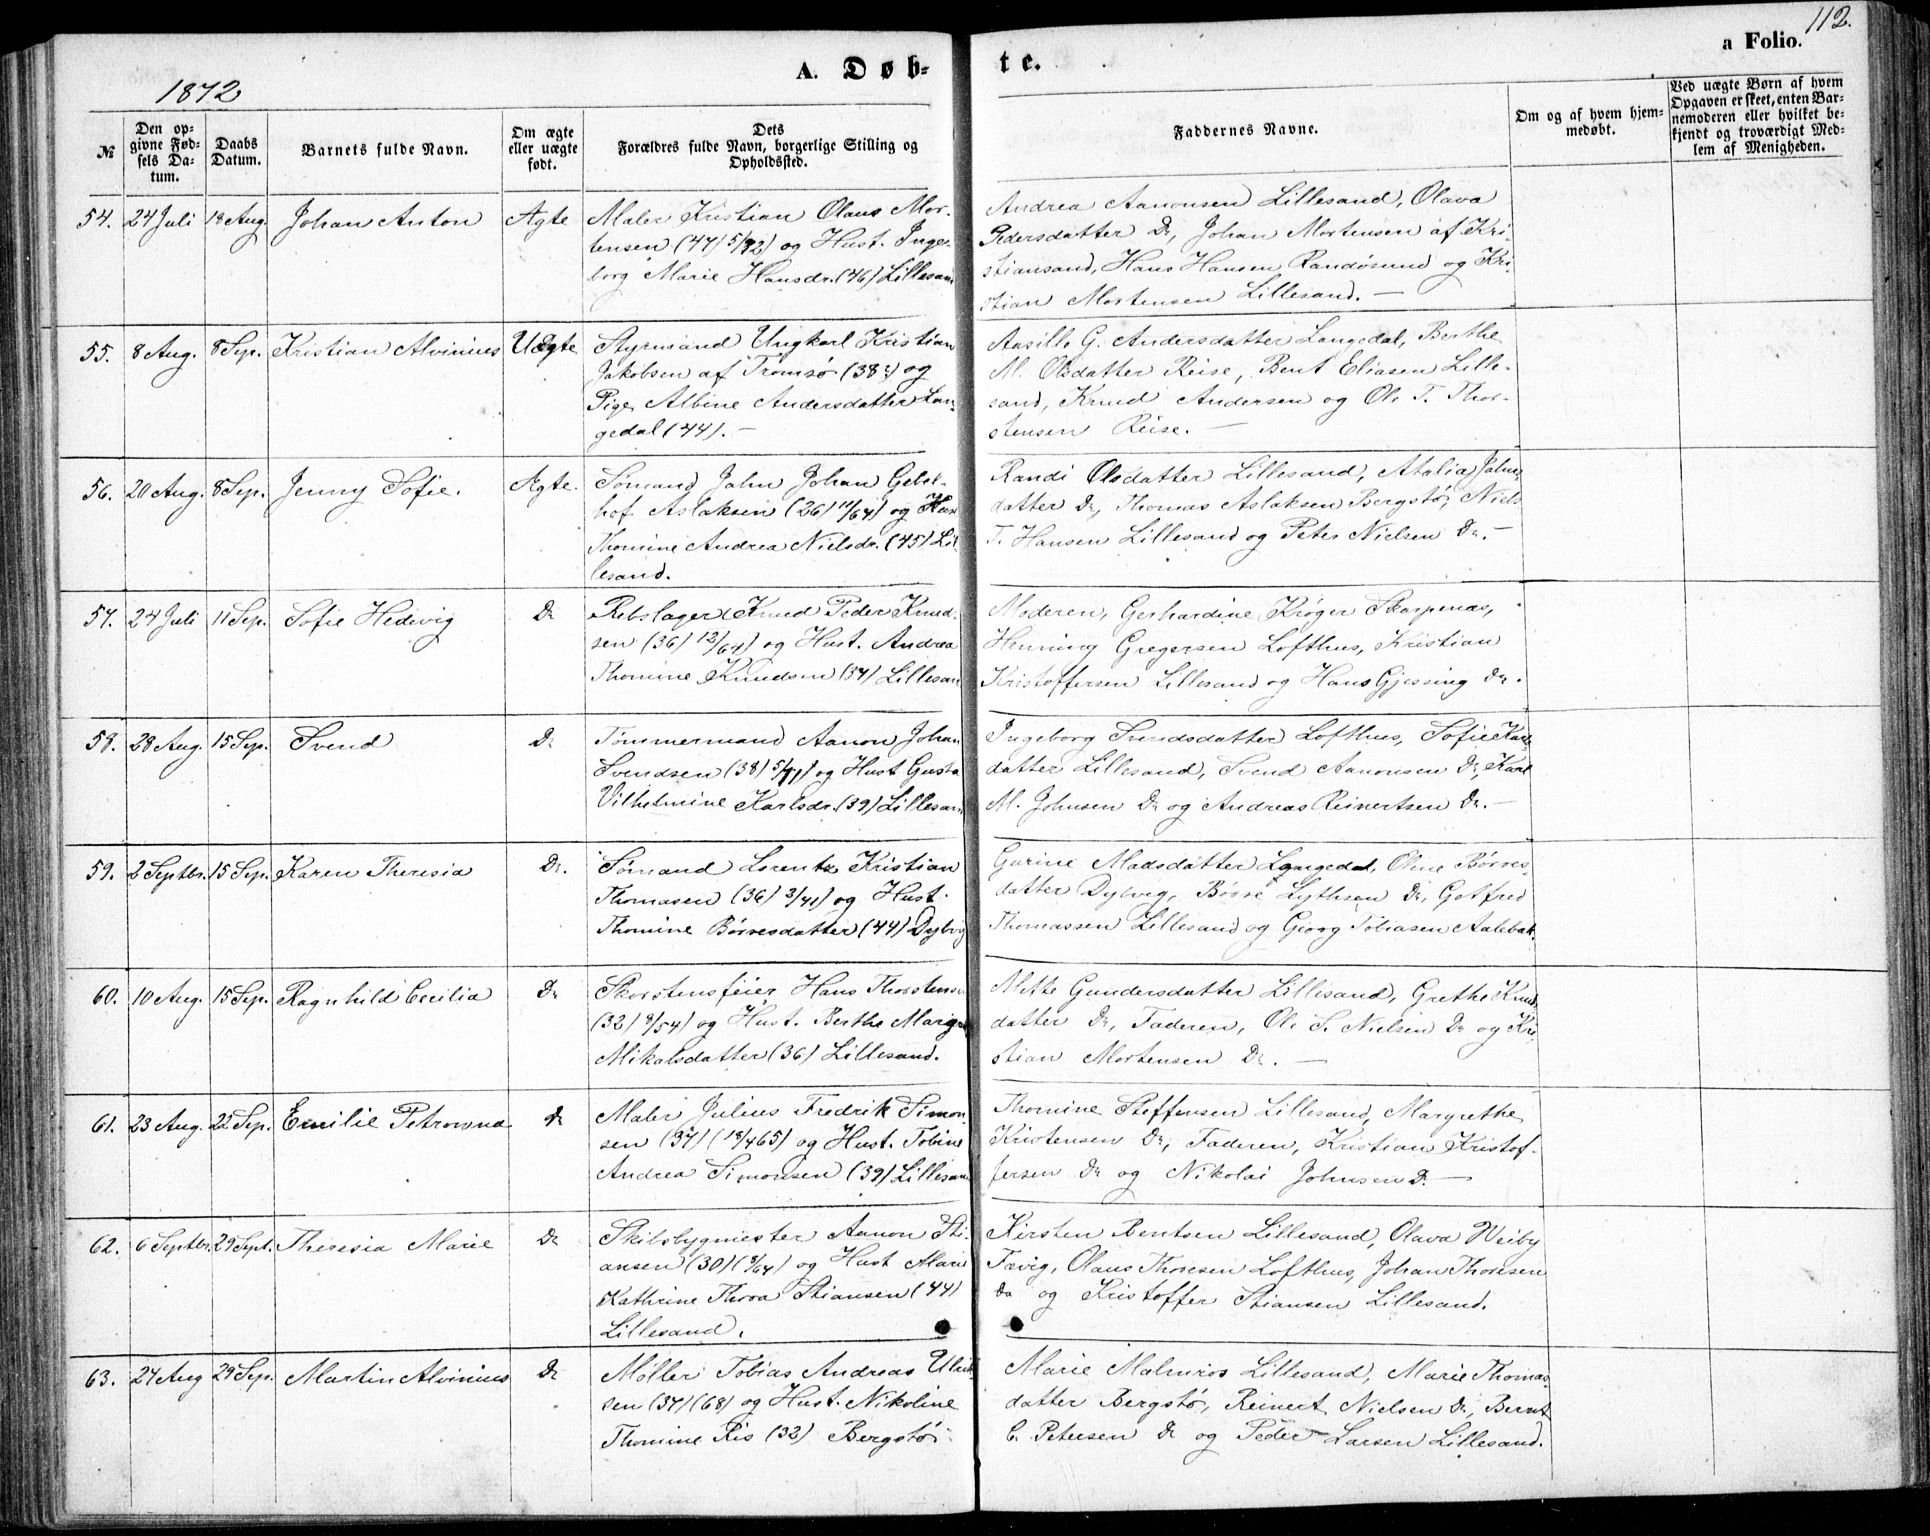 112.
a Folio.
A. Døb-
te.
1872
№
Den op-
givne Fød-
sels Da-
tum.
Daabs
Datum.
Barnets fulde Navn.
Om ægte
eller uægte
født.
Dets
Forældres fulde Navn, borgerlige Stilling og
Opholdssted.
Faddernes Navne.
Om og af hvem hjem-
medøbt.
Ved uægte Børn af hvem
Opgaven er skeet, enten Bar-
nemoderen eller hvilket be-
kjendt og troværdigt Med-
lem af Menigheden.
54. 24 Juli 18 Aug. Johan Anton Ægte
Maler Kristian Olaus Mor-
tensen (47) 5/72) og Hust. Inge-
borg Marie Hansdr. (46) Lillesand
Andrea Aanonsen Lillesand, Olava
Pedersdatter Do, Johan Mortensen af Kri-
stiansand, Hans Hansen Randøsund og Kri-
stian Mortensen Lillesand. —
55. 8 Aug. 8 Sep. Kristian Alvinius Uægte
Styrmand Ungkarl Kristian
Jakobsen af Tromsø (38) og
Pige Albine Andersdatter Lan-
gedal (44). —
Aasille G. Andersdatter Langedal, Berthe
M. Olsdatter Reise, Bent Eliasen Lille-
sand, Knud Andersen og Ole T. Thor-
stensen Reise. —
56. 20 Aug. 8 Sep. Jenny Sofie. Ægte.
Sømand John Johan Gebel-
hof Aslaksen (26) 11/64) og Hust
Thomine Andrea Nielsdr. (45) Lil-
lesand.
Randi Olsdatter Lillesand, Atalia Johns-
datter Do, Thomas Aslaksen Bergstø, Niels
T. Hansen Lillesand og Peter Nielsen Do. —
57. 24 Juli 11 Sep. Sofie Hedevig Do
Rebslager Knud Peder Knud-
sen (36) 12/64) og Hust. Andrea
Thomine Knudsen (37) Lillesand
Moderen, Gerhardine Krøger Skarpenas,
Henning Gregersen Lofthus, Kristian
Kristoffersen Lillesand og Hans Gjessing Do.
58. 28 Aug. 15 Sep. Svend Do
Tømmermand Aanon Johan
Svendsen (38) 5/71) og Hust Gusta
Vilhelmine Karlsdr. (39) Lillesand
Ingeborg Svendsdatter Lofthus, Sofie Karls-
datter Lillesand, Svend Aanonsen Do, Karl
M. Johnsen Do og Andreas Reinertsen Do. —
59. 2 Septbr. 15 Sep. Karen Theresia Do.
Sømand Lorents Kristian
Thomasen (36) 3/71) og Hust.
Thomine Børresdatter (44) Dybvig
Gurine Madsdatter Langedal, Oline Børres-
datter Dybvig, Børre Lythsen Do, Gotfred
Thomassen Lillesand og Georg Tobiasen Aalebæk.
60. 10 Aug. 15 Sep. Ragnhild Cecilia Do
Skorstensfeier Hans Thorstensen
(32) 8/54) og Hust. Berthe Margrethe
Mikalsdatter (36) Lillesand.
Mette Gundersdatter Lillesand, Grethe Knuds-
datter Do, Faderen, Ole S. Nielsen Do og Kri-
stian Mortensen Do. —
61. 23 Aug. 22 Sep. Emilie Petrowna do
Maler Julius Fredrik Simon-
sen (37) (18/465) og Hust. Tobine
Andrea Simonsen (39) Lillesand
Thomine Steffensen Lillesand, Margrethe
Kristensen Do, Faderen, Kristian Kristof-
fersen Do og Nikolai Johnsen D. —
62. 6 Septbr. 29 Sept. Theresia Marie Do
Skibsbygmester Aanon Sti-
ansen (30) (8/64) og Hust Marie
Kathrine Thora Stiansen (44)
Lillesand.
Kirsten Berntsen Lillesand, Olava Weiby
Favig, Olaus Thoresen Lofthus, Johan Thoresen
Do og Kristoffer Stiansen Lillesand.
63. 27 Aug 29 Sep. Martin Alvinius Do
Møller Tobias Andreas Ulrik-
sen (37) (68) og Hust. Nikoline
Thomine Ris (32) Bergstø.
Marie Malmros Lillesand, Marie Thomas-
datter Bergstø, Reinert Nielsen Do, Bernt
C. Petersen Do og Peder Larsen Lillesand.